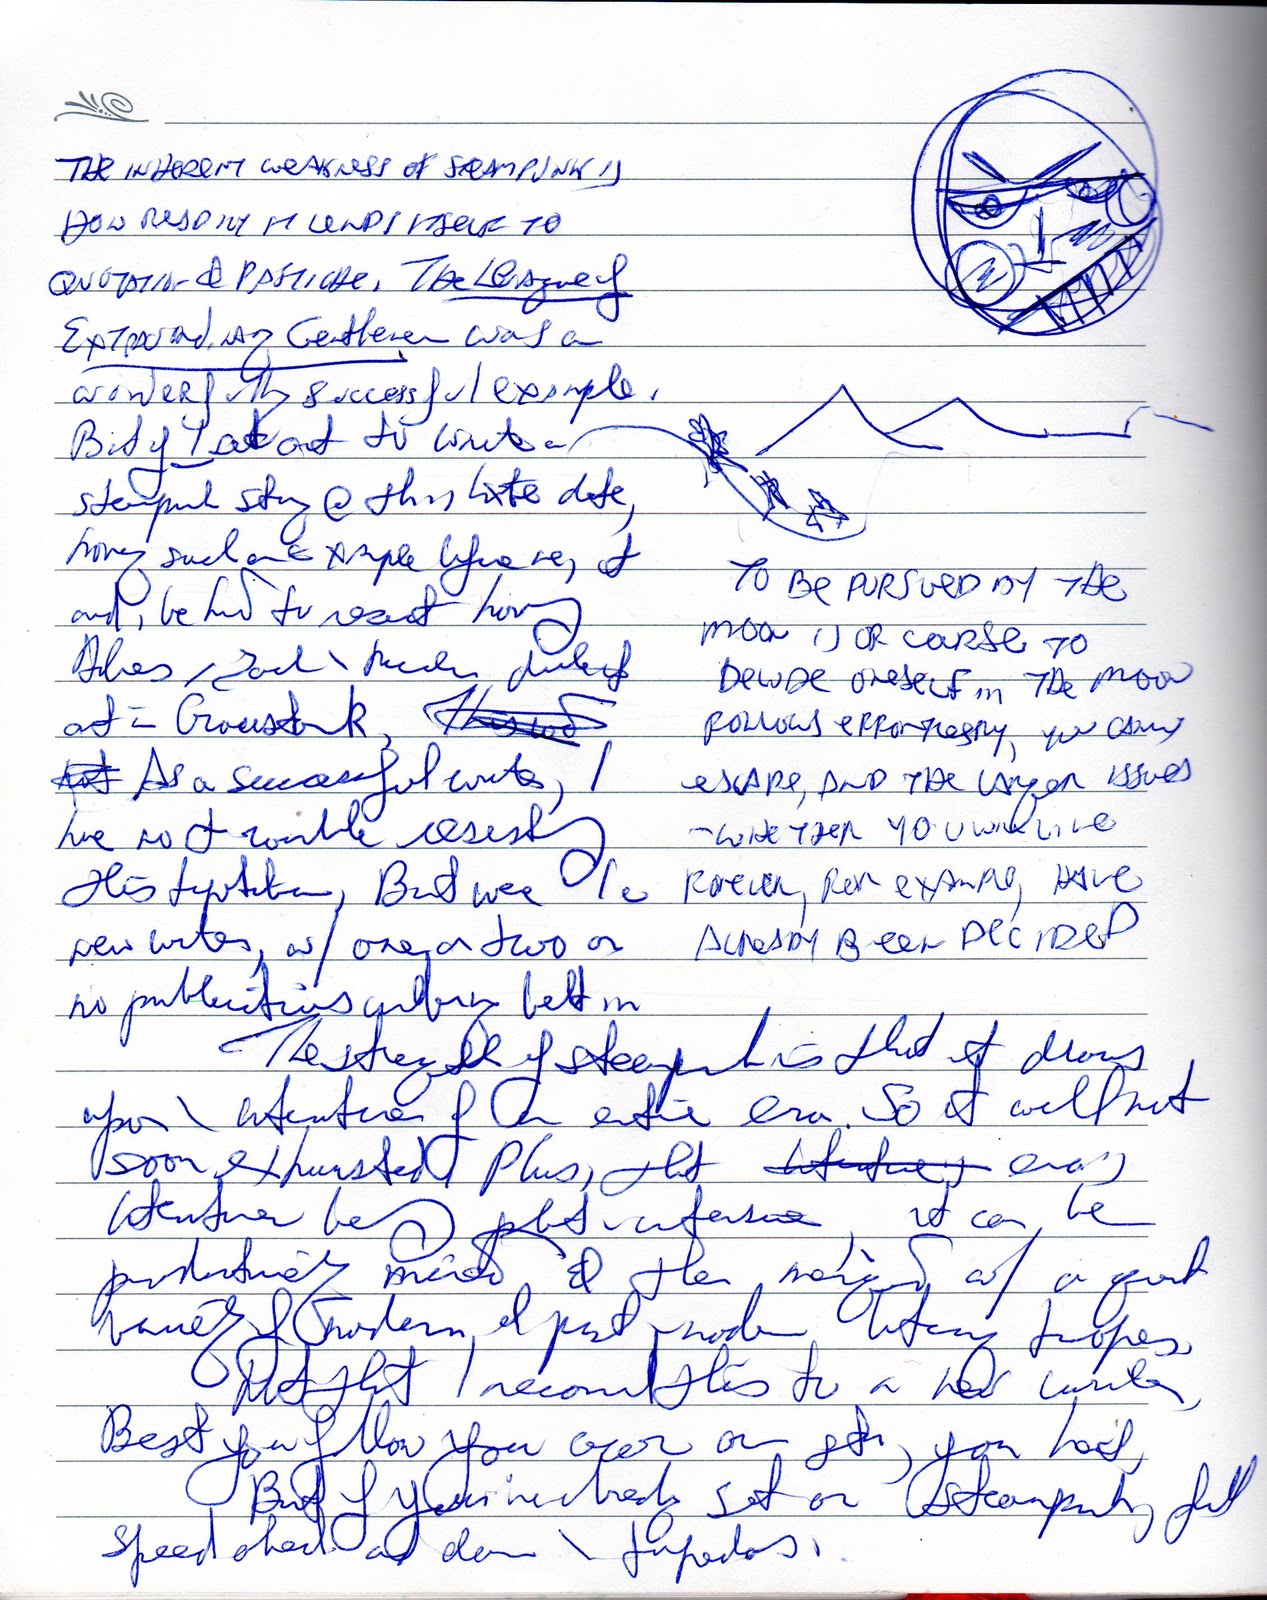 THE INHERENT WEAKNESS OF STEAMPUNK IS
HOW READILY IT LENDS ITSELF TO
QUOTATION & PASTICHE. The League of
Extraordinary Gentlemen was a
wonderfully successful example.
But if I set out to write a
steampunk story @ this late date,
having such an example before me, I
'd be hard to resist having
Holmes,
out in
As a successful writer, I
have no trouble resisting
this temptation, But were I a
new writer, w/ one or two or
no publications under my belt
The strength of steampunk is that it draws
upon \ literature of an entire era. So it will not
soon exhausted Plus, that era's
literature being plot-intensive, it can be
productively mined & then merged w/ a great
variety of modern & post-modern literary tropes.
Not that I recommend this to a new writer,
Best you follow your own
But if your heart's set on steampunk, full
speed ahead and damn \ torpedos.
TO BE PURSUED BY THE
MOON IS OF COURSE TO
DELUDE ONESELF THE MOON
FOLLOWS EFFORTLESSLY, YOU CAN'T
ESCAPE, AND THE LARGER ISSUES
-WHETHER YOU WILL LIVE
FOREVER, FOR EXAMPLE, HAVE
ALREADY BEEN DECIDED